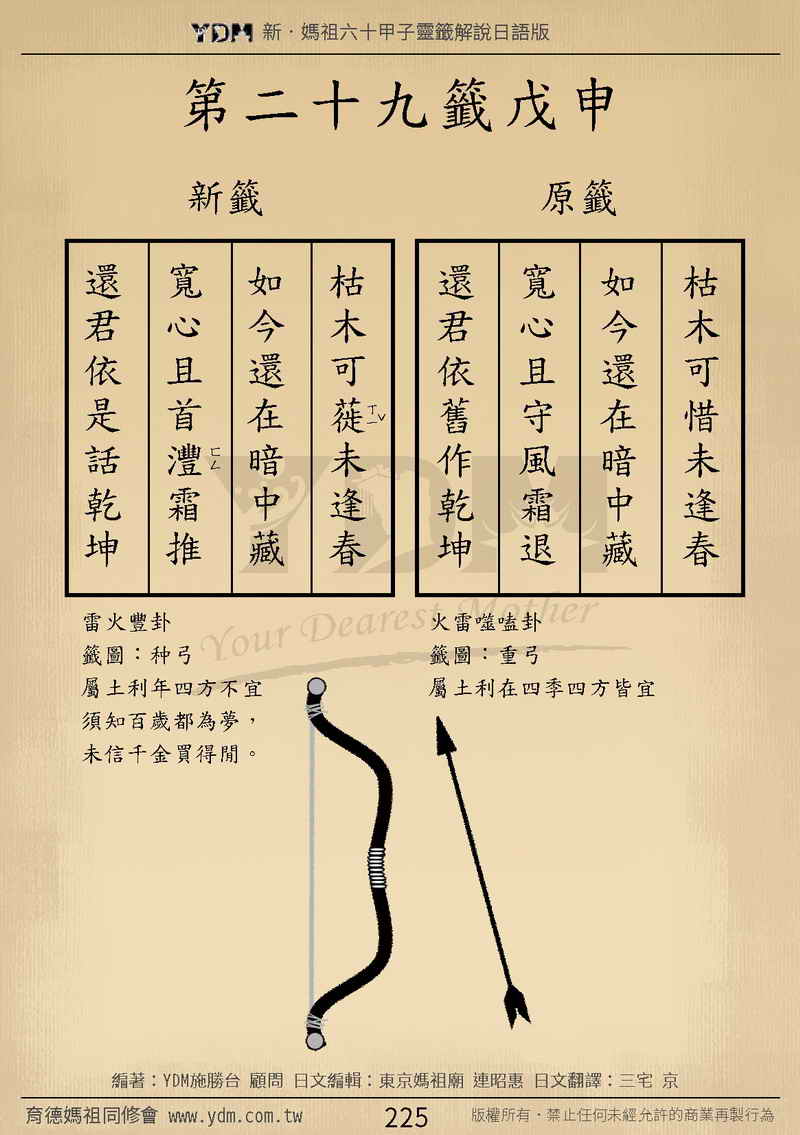 YDM 新．媽祖六十甲子靈籤解說日語版
第二十九籤戊申
原籤
枯木可惜未逢春
如今還在暗中藏
寬心且守風霜退
還君依舊作乾坤
新籤
枯木可蓰未逢春
ㄒㄧˇ
如今還在暗中藏
寬心且首灃霜推
ㄈㄥ
還君依是話乾坤
YDM
Your Dearest Mother
火雷噬嗑卦
籤圖：重弓
屬土利在四季四方皆宜
雷火豐卦
籤圖：种弓
屬土利年四方不宜
須知百歲都為夢，
未信千金買得閒。
編著：YDM施勝台 顧問 日文編輯：東京媽祖廟 連昭惠 日文翻譯：三宅 京
育德媽祖同修會 www.ydm.com.tw
225
版權所有．禁止任何未經允許的商業再製行為